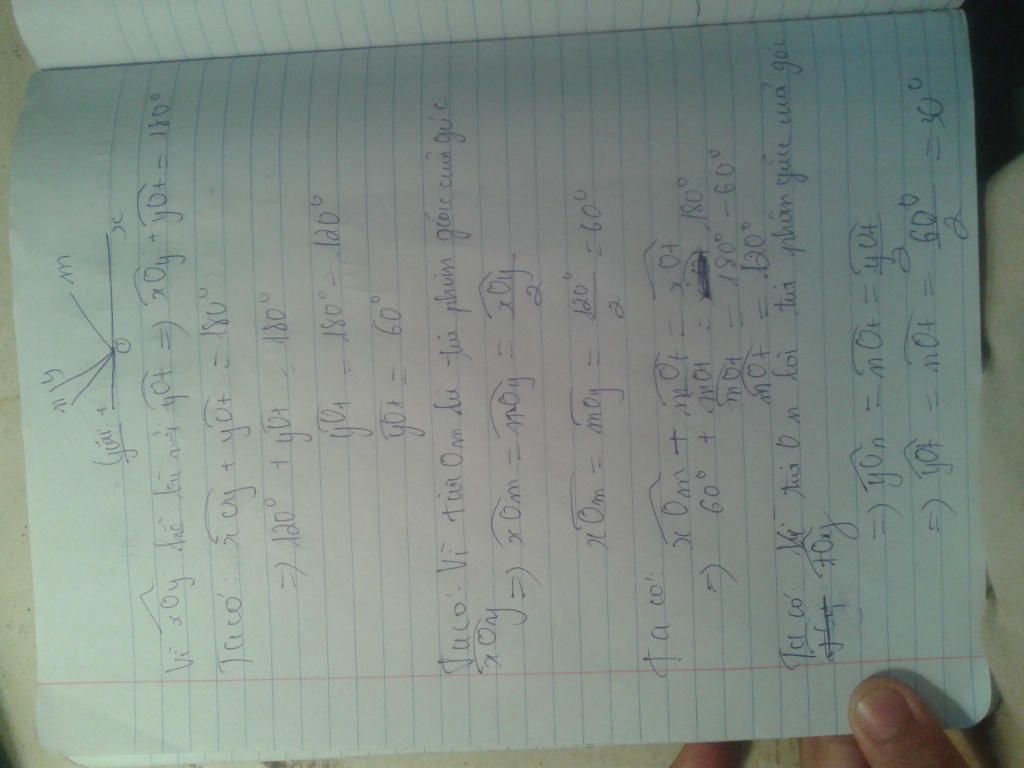 n y m
Giải t O x
Vì xOy kề bù với yOt => xOy + yOt = 180°
Ta có: xOy + yOt = 180°
=> 120° + yOt = 180°
yOt = 180° - 120°
yOt = 60°
Ta có: Vì tia Om là tia phân góc của góc
xOy => xOm = mOy = xOy/2
xOm = mOy = 120°/2 = 60°
Ta có: xOm + mOt = xOt
=> 60° + mOt = 180°
mOt = 180° - 60°
mOt = 120°
Ta có: Vì tia On là tia phân giác của góc
tOy
=> yOn = nOt = yOt/2
=> yOt = nOt = 60°/2 = 30°